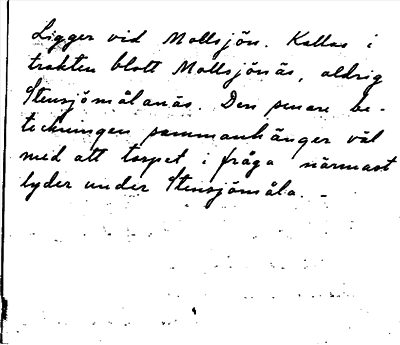 Ligger vid Mollsjön. Kallas i
trakten blott Mollsjönäs, aldrig
Stensjömålanäs. Den senare be-
teckningen sammanhänger väl
med att torpet i fråga närmast
lyder under Stensjömåla. -